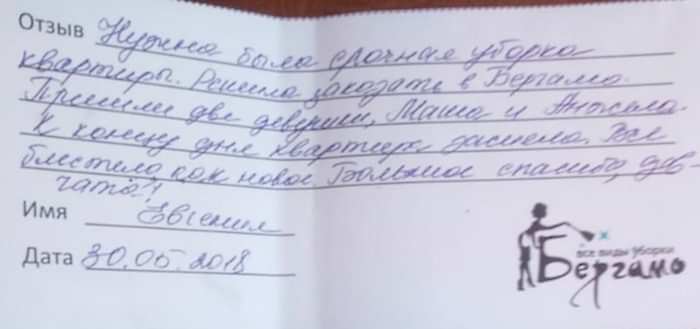 Отзыв Нужна была срочная уборка
квартиры. Решила заказать в Бергамо.
Пришли две девушки, Маша и Анжела.
К концу дня квартира засияла. Все
блестело как новое. Большое спасибо, дев-
чата!
Имя Евгения
Дата 30.05.2018
все виды уборки
Бергамо